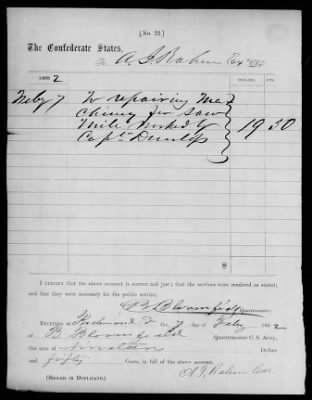 [No. 22.]
The Confederate States,
To A. J. Rahm Exr Dr.
1862 DOLLARS. CTS.
Feby 7 To repairing Ma
chinery for Saw
Mill worked by
Capt Dunlop 19 50
$
I CERTIFY that the above account is correct and just; that the services were rendered as stated; and
that they were necessary for the public service.
B Bloomfield Quartermaster.
RECEIVED at Richmond Va 7 day of Feby 1862
of B Bloomfield Quartermaster C. S. Army,
the sum of nineteen Dollars
and fifty Cents, in full of the above account.
(SIGNED IN DUPLICATE.) A J. Rahm Exr